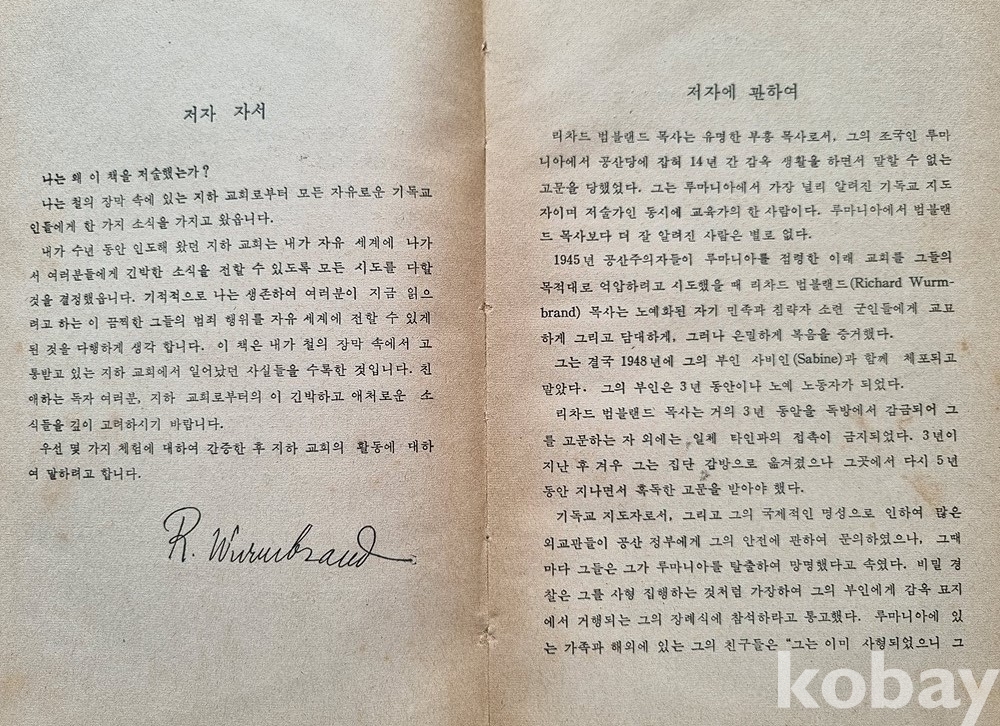 저자 자서
나는 왜 이 책을 저술했는가?
나는 철의 장막 속에 있는 지하 교회로부터 모든 자유로운 기독교
인들에게 한 가지 소식을 가지고 왔읍니다.
내가 수년 동안 인도해 왔던 지하 교회는 내가 자유 세계에 나가
서 여러분들에게 긴박한 소식을 전할 수 있도록 모든 시도를 다할
것을 결정했읍니다. 기적적으로 나는 생존하여 여러분이 지금 읽으
려고 하는 이 끔찍한 그들의 범죄 행위를 자유 세계에 전할 수 있게
된 것을 다행하게 생각 합니다. 이 책은 내가 철의 장막 속에서 고
통받고 있는 지하 교회에서 일어났던 사실들을 수록한 것입니다. 친
애하는 독자 여러분, 지하 교회로부터의 이 긴박하고 애처로운 소
식들을 깊이 고려하시기 바랍니다.
우선 몇 가지 체험에 대하여 간증한 후 지하 교회의 활동에 대하
여 말하려고 합니다.
R. Wurmbrand
저자에 관하여
리차드 범블랜드 목사는 유명한 부흥 목사로서, 그의 조국인 루마
니아에서 공산당에 잡혀 14년 간 감옥 생활을 하면서 말할 수 없는
고문을 당했었다. 그는 루마니아에서 가장 널리 알려진 기독교 지도
자이며 저술가인 동시에 교육가의 한 사람이다. 루마니아에서 범블랜
드 목사보다 더 잘 알려진 사람은 별로 없다.
1945년 공산주의자들이 루마니아를 점령한 이래 교회를 그들의
목적대로 억압하려고 시도했을 때 리차드 범블랜드(Richard Wurm-
brand) 목사는 노예화된 자기 민족과 침략자 소련 군인들에게 교묘
하게 그리고 담대하게, 그러나 은밀하게 복음을 증거했다.
그는 결국 1948년에 그의 부인 사비인(Sabine)과 함께 체포되고
말았다. 그의 부인은 3년 동안이나 노예 노동자가 되었다.
리차드 범블랜드 목사는 거의 3년 동안을 독방에서 감금되어 그
를 고문하는 자 외에는 일체 타인과의 접촉이 금지되었다. 3년이
지난 후 겨우 그는 집단 감방으로 옮겨졌으나 그곳에서 다시 5년
동안 지나면서 혹독한 고문을 받아야 했다.
기독교 지도자로서, 그리고 그의 국제적인 명성으로 인하여 많은
외교관들이 공산 정부에게 그의 안전에 관하여 문의하였으나, 그때
마다 그들은 그가 루마니아를 탈출하여 망명했다고 속였다. 비밀 경
찰은 그를 사형 집행하는 것처럼 가장하여 그의 부인에게 감옥 묘지
에서 거행되는 그의 장례식에 참석하라고 통고했다. 루마니아에 있
는 가족과 해외에 있는 그의 친구들은 "그는 이미 사형되었으니 그
kobay